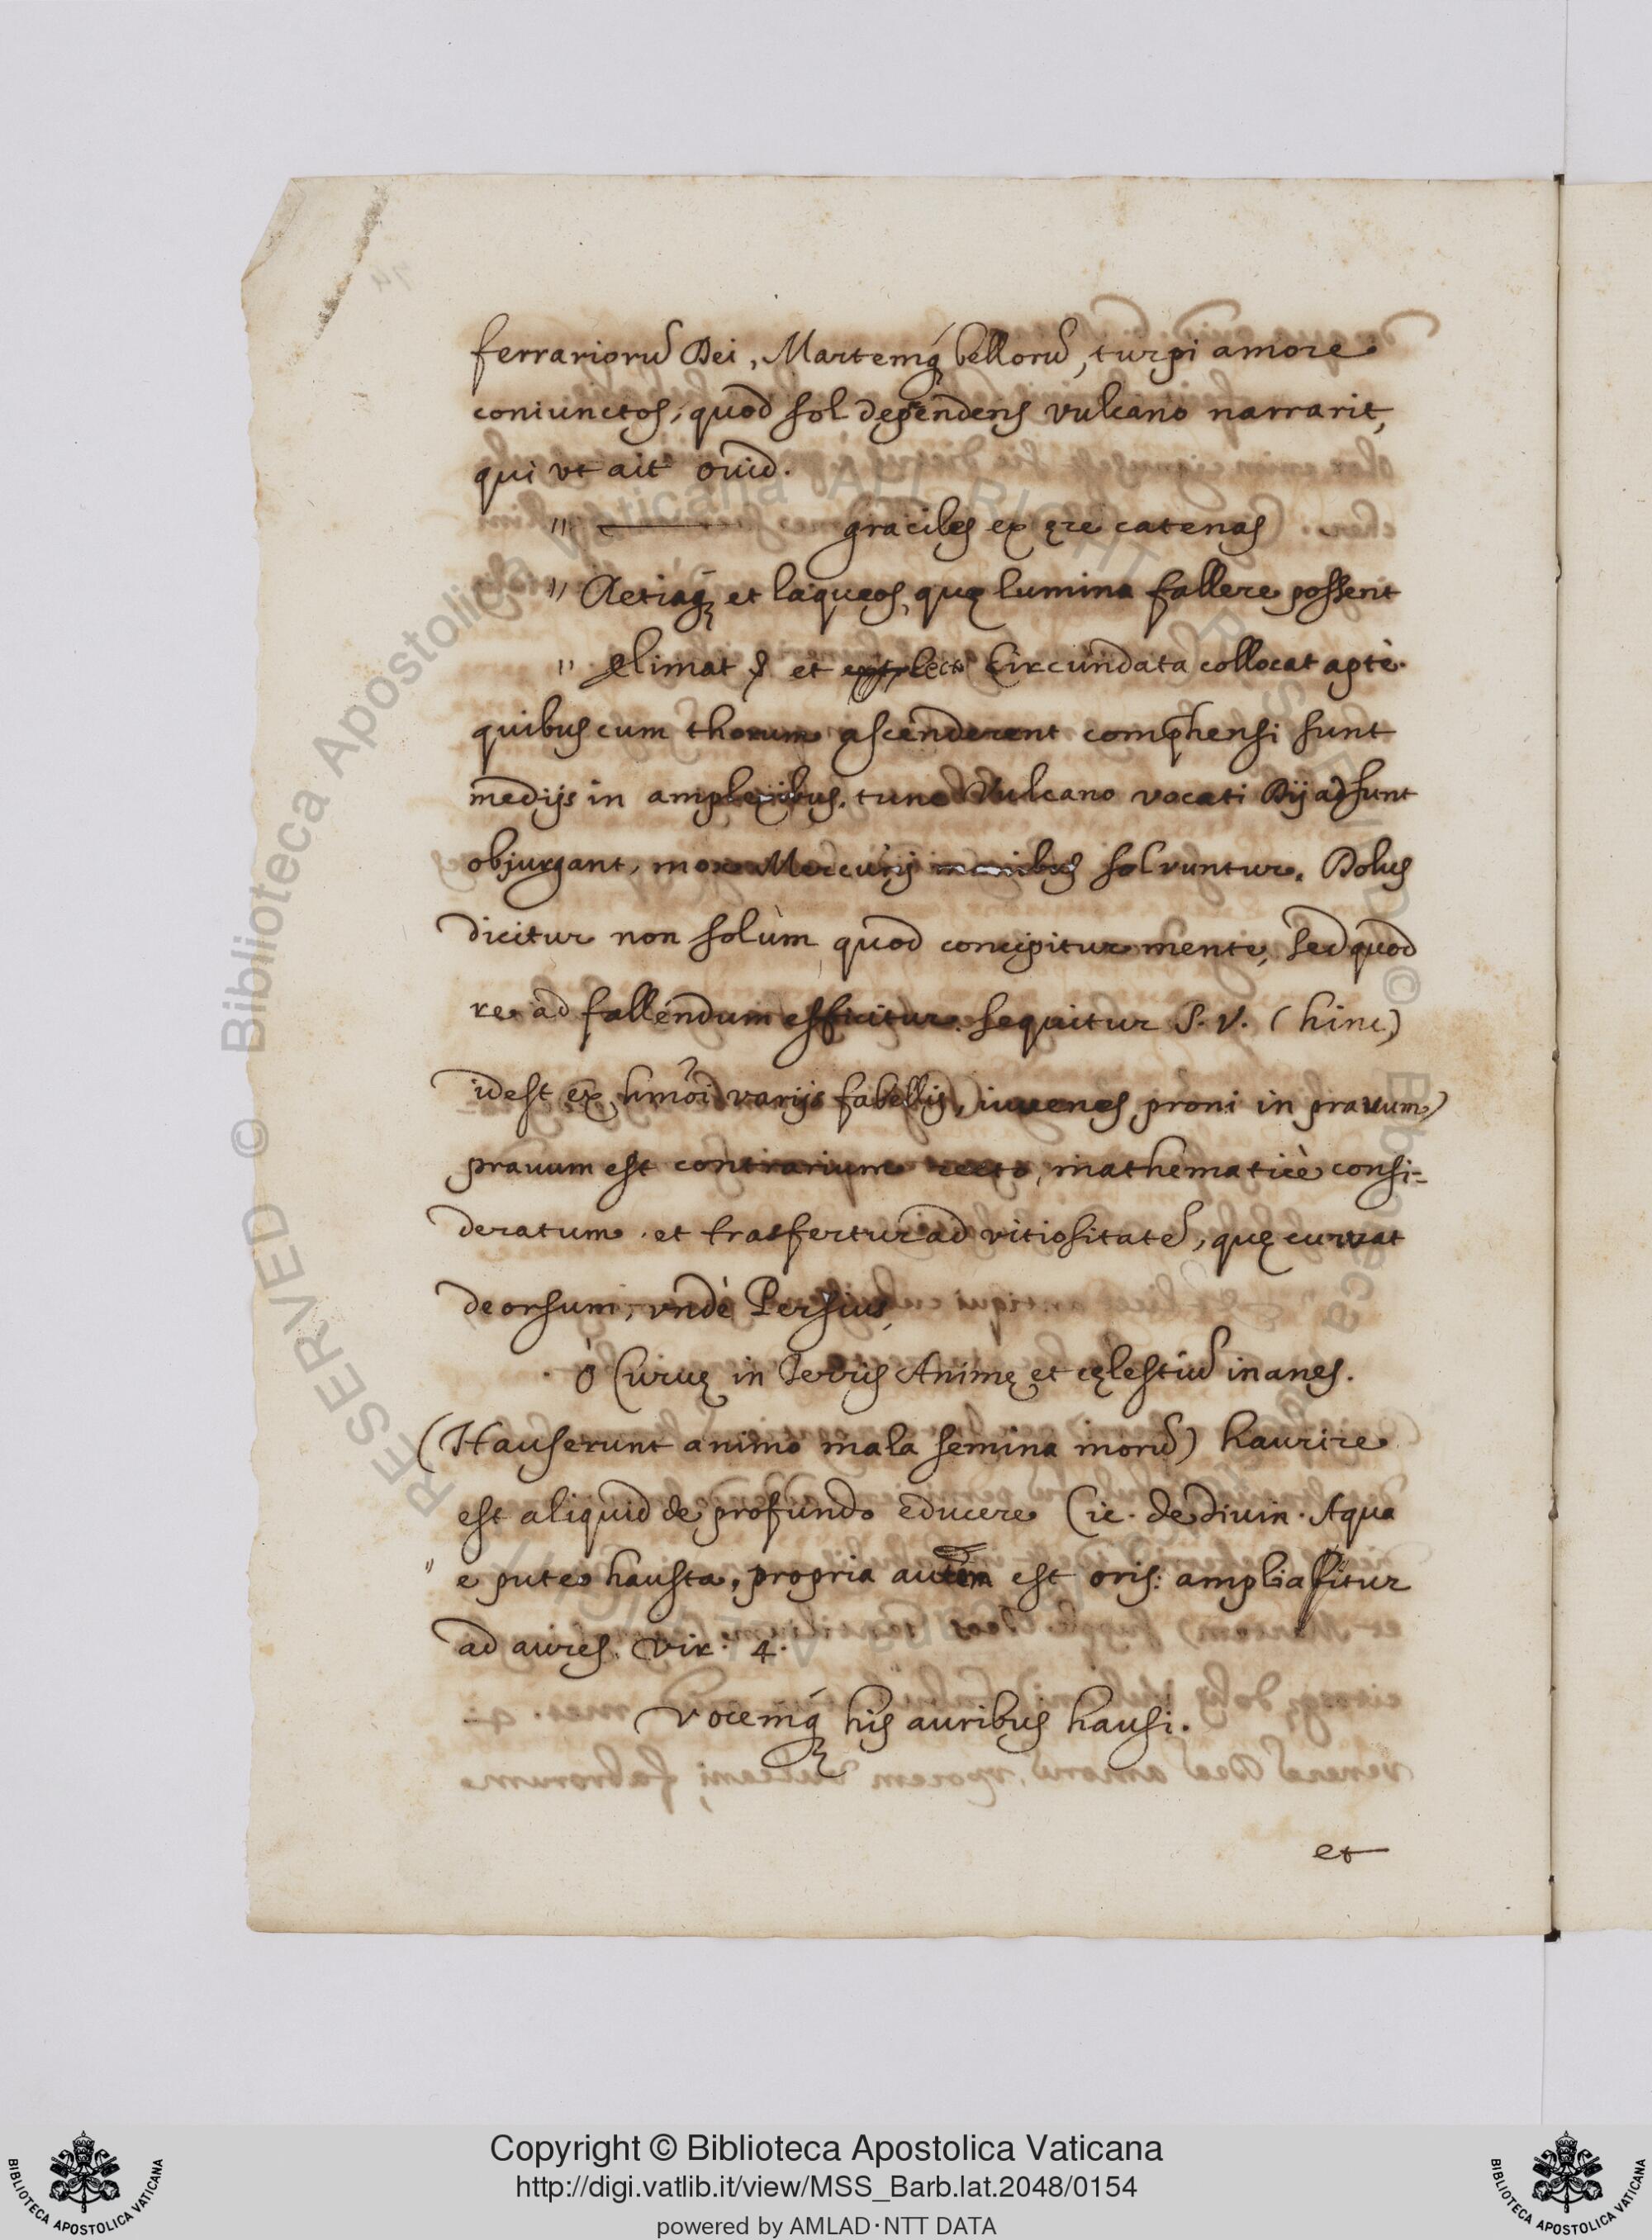 ferrariorũ Dei, Martemq́ꝫ bellorũ, turpi amore
coniunctos, quod sol depẽndens vulcano narrarit,
qui vt ait ouid.
" graciles ex ęre catenas
" Retiaq́ꝫ et laqueos, quę lumina fallere possent
" elimat et lecto circundata collocat aptè.
quibus cum thorum ascenderent compħensi sunt
medijs in amplexibus. tunc Vulcano vocati Dij adsunt
objurgant, mox Mercurij manibus solvuntur. Dolus
dicitur non solùm quod concipitur mente, sed quod
re ad fallendum efficitur. sequitur P. V. (hinc)
idest ex hmõi varijs fabellis, iuvenes proni in pravum)
prauum est contrarium recto, mathematicè consi-
deratum. et trasfertur ad vitiositatẽ, quę curvat
deorsum, vndè Persius,
ò Curuę in Terris Animę et cęlestiũ inanes.
(Hauserunt animo mala semina morũ) haurire
est aliquid de profundo educere Cic. de Diuin. Aqua
" e puteo hausta, propria autem est oris: ampliatur
ad aures. Vir. 4.
Vocemq́ꝫ his auribus hausi.
et
Copyright © Biblioteca Apostolica Vaticana
http://digi.vatlib.it/view/MSS_Barb.lat.2048/0154
powered by AMLAD·NTT DATA
BIBLIOTECA APOSTOLICA VATICANA
BIBLIOTECA APOSTOLICA VATICANA